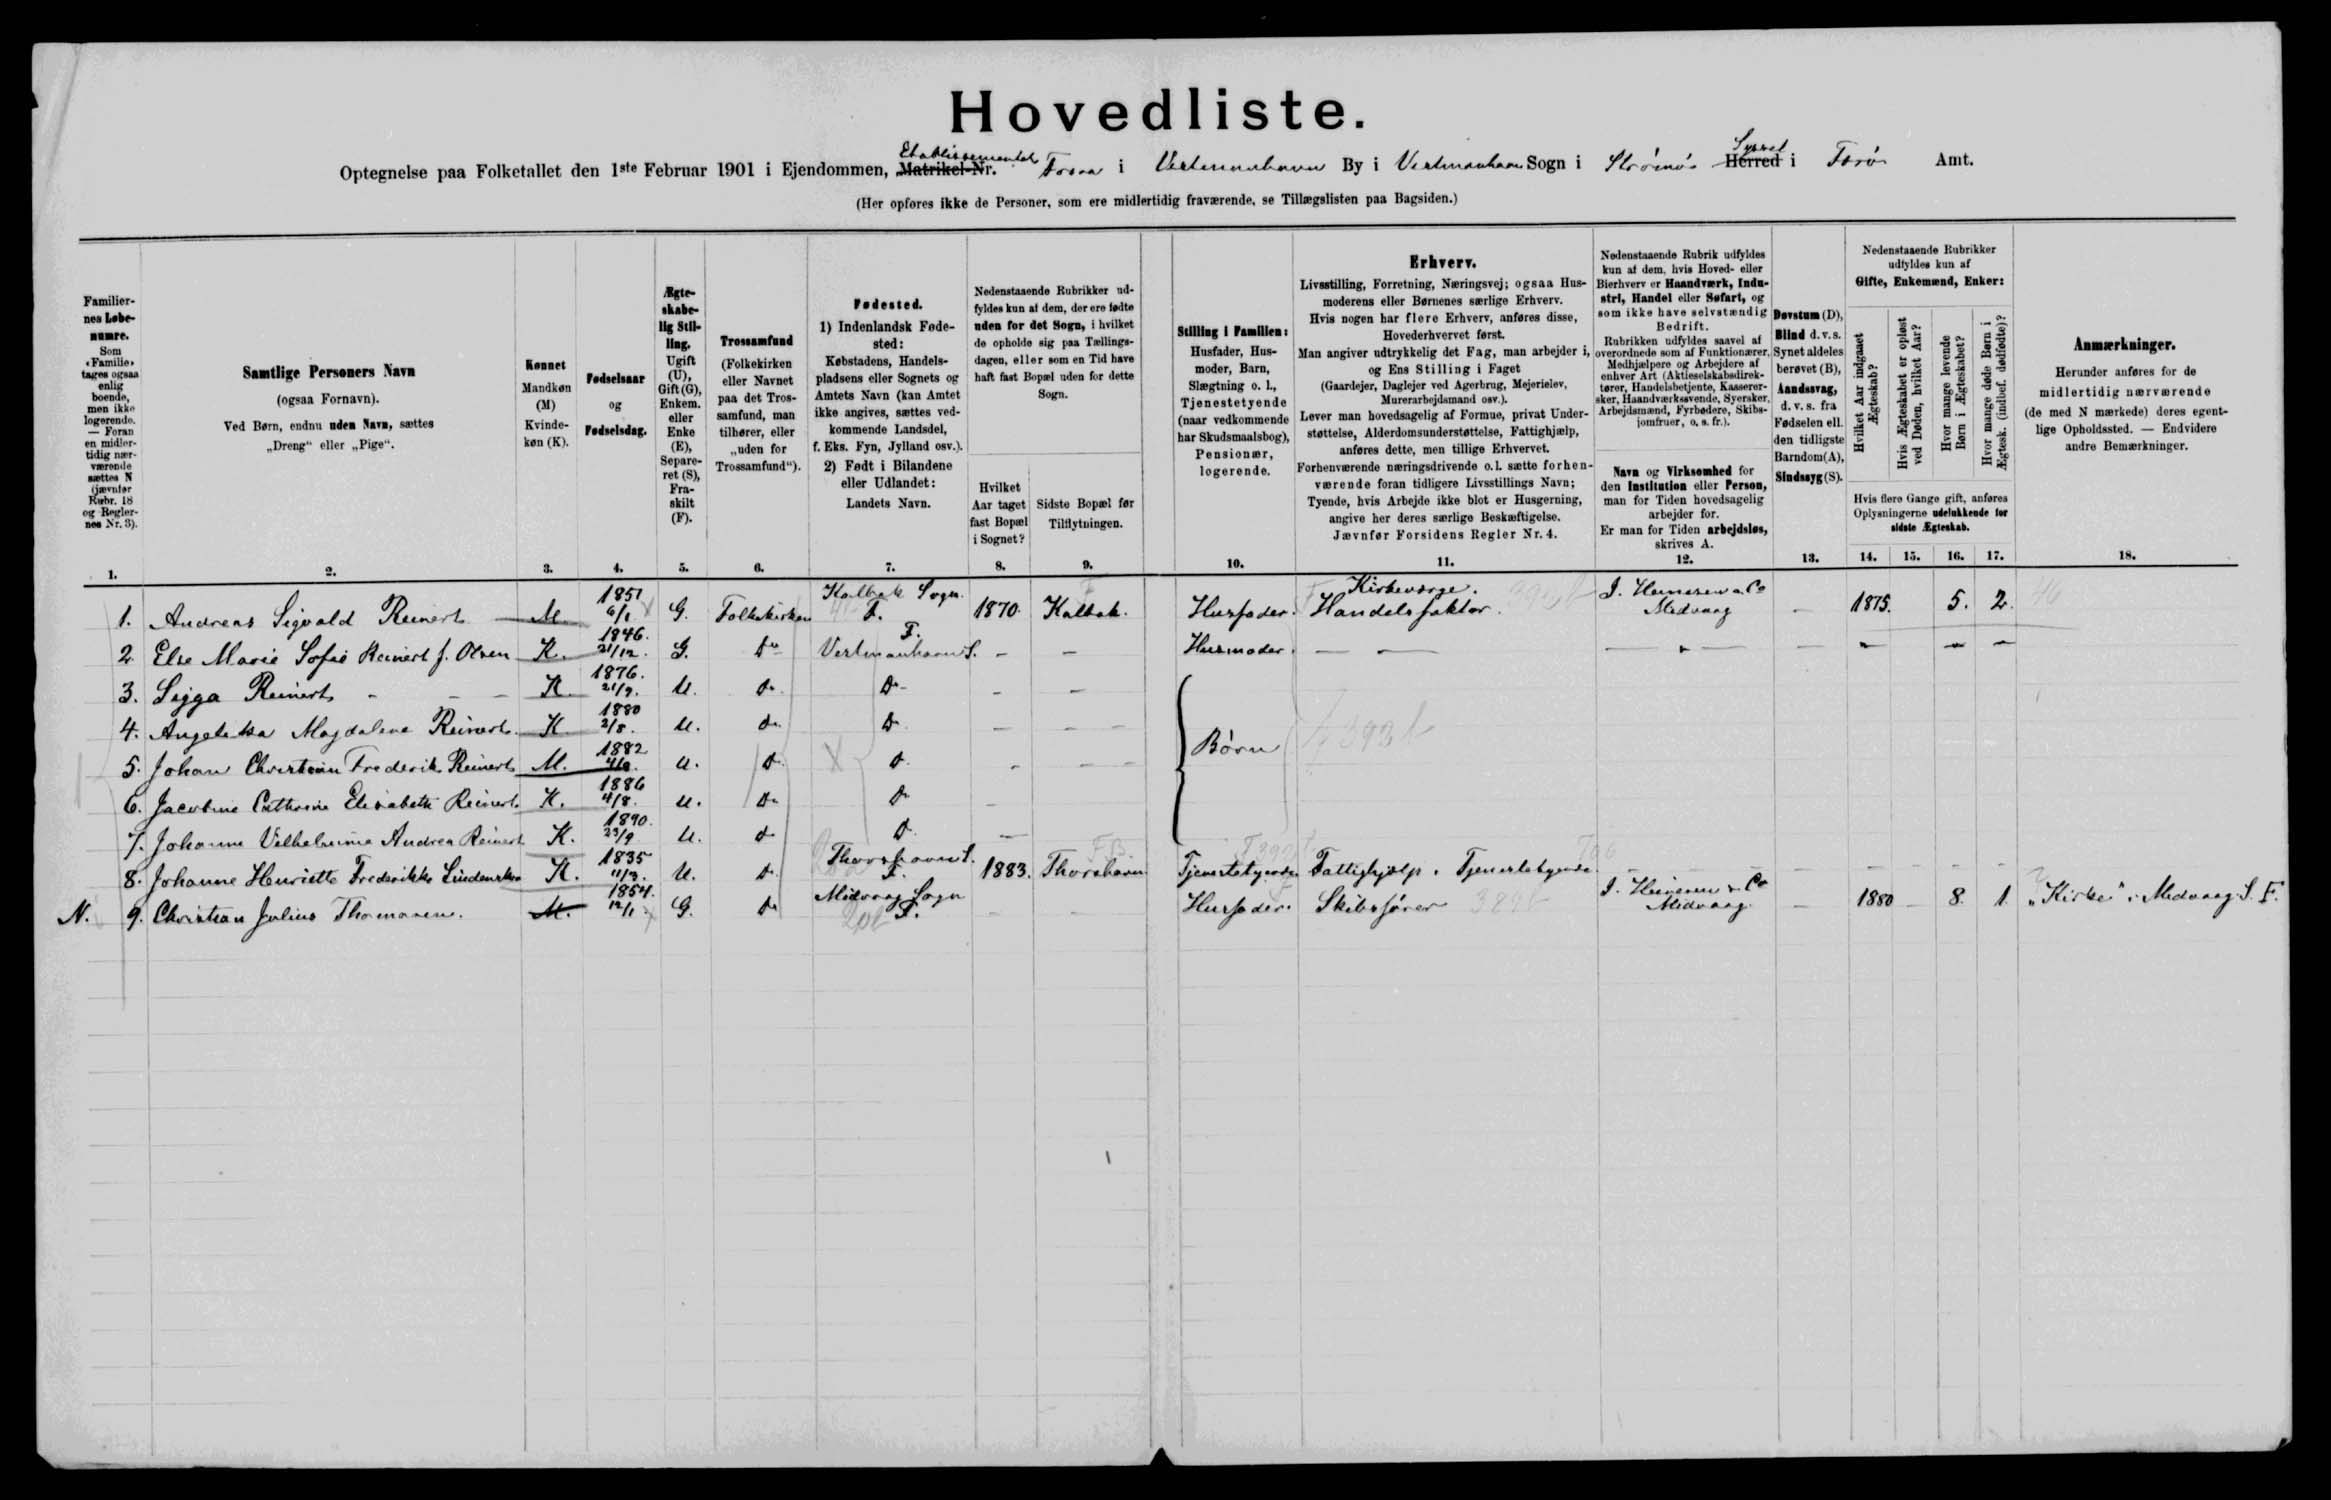 Hovedliste.
Optegnelse paa Folketallet den 1ste Februar 1901 i Ejendommen, Matrikel-Nr. Etablissementet Fossa i Vestmanhavn By i Vestmanhavn Sogn i Strömö Herred Syssel i Färö Amt.
(Her opføres ikke de Personer, som ere midlertidig fraværende, se Tillægslisten paa Bagsiden.)
Familiernes Løbenumre.
Som «Familie» tages ogsaa enlig boende, men ikke logerende. — Foran en midlertidig nærværende sættes N (jævnfør Rubr. 18 og Reglernes Nr. 3).
1.
Samtlige Personers Navn
(ogsaa Fornavn).
Ved Børn, endnu uden Navn, sættes
„Dreng“ eller „Pige“.
2.
Kønnet
Mandkøn (M)
Kvindekøn (K).
3.
Fødselsaar
og
Fødselsdag.
4.
Ægteskabelig Stilling.
Ugift (U), Gift (G), Enkem. eller Enke (E), Separeret (S), Fraskilt (F).
5.
Trossamfund
(Folkekirken eller Navnet paa det Trossamfund, man tilhører, eller „uden for Trossamfund“).
6.
Fødested.
1) Indenlandsk Fødested:
Købstadens, Handelspladsens eller Sognets og Amtets Navn (kan Amtet ikke angives, sættes vedkommende Landsdel, f. Eks. Fyn, Jylland osv.).
2) Født i Bilandene eller Udlandet:
Landets Navn.
7.
Nedenstaaende Rubrikker udfyldes kun af dem, der ere fødte uden for det Sogn, i hvilket de opholde sig paa Tællingsdagen, eller som en Tid have haft fast Bopæl uden for dette Sogn.
Hvilket Aar taget fast Bopæl i Sognet?
8.
Sidste Bopæl før Tilflytningen.
9.
Stilling i Familien:
Husfader, Husmoder, Barn, Slægtning o. l., Tjenestetyende (naar vedkommende har Skudsmaalsbog), Pensionær, logerende.
10.
Erhverv.
Livsstilling, Forretning, Næringsvej; ogsaa Husmoderens eller Børnenes særlige Erhverv.
Hvis nogen har flere Erhverv, anføres disse, Hovederhvervet først.
Man angiver udtrykkelig det Fag, man arbejder i, og Ens Stilling i Faget
(Gaardejer, Daglejer ved Agerbrug, Mejerielev, Murerarbejdsmand osv.).
Lever man hovedsagelig af Formue, privat Understøttelse, Alderdomsunderstøttelse, Fattighjælp, anføres dette, men tillige Erhvervet.
Forhenværende næringsdrivende o.l. sætte forhenværende foran tidligere Livsstillings Navn;
Tyende, hvis Arbejde ikke blot er Husgerning, angive her deres særlige Beskæftigelse.
Jævnfør Forsidens Regler Nr. 4.
11.
Nedenstaaende Rubrik udfyldes kun af dem, hvis Hoved- eller Bierhverv er Haandværk, Industri, Handel eller Søfart, og som ikke have selvstændig Bedrift.
Rubrikken udfyldes saavel af overordnede som af Funktionærer, Medhjælpere og Arbejdere af enhver Art (Aktieselskabsdirektører, Handelsbetjente, Kasserersker, Haandværkssvende, Syersker, Arbejdsmænd, Fyrbødere, Skibsjomfruer, o. s. fr.).
Navn og Virksomhed for den Institution eller Person, man for Tiden hovedsagelig arbejder for.
Er man for Tiden arbejdsløs, skrives A.
12.
Døvstum (D), Blind d. v. s. Synet aldeles berøvet (B), Aandssvag, d. v. s. fra Fødselen ell. den tidligste Barndom (A), Sindssyg (S).
13.
Nedenstaaende Rubrikker udfyldes kun af
Gifte, Enkemænd, Enker:
Hvilket Aar indgaaet Ægteskab?
Hvis Ægteskabet er opløst ved Døden, hvilket Aar?
Hvor mange levende Børn i Ægteskabet?
Hvor mange døde Børn i Ægtesk. (indbef. dødfødte)?
Hvis flere Gange gift, anføres Oplysningerne udelukkende for sidste Ægteskab.
14. 15. 16. 17.
Anmærkninger.
Herunder anføres for de midlertidig nærværende (de med N mærkede) deres egentlige Opholdssted. — Endvidere andre Bemærkninger.
18.
1. Andreas Sigvald Reinert M. 1851 6/1 G. Folkekirken Kalbak Sogn. F. 1870 Kalbak. Husfader. Kirkeværge. Handelsfaktor. Medvaag — 1875. 5. 2.
2. Else Marie Sofie Reinert f. Olsen K. 1846. 21/12. G. Do Vestmanhavn S. F. — — Husmoder. — —
3. Sigga Reinert K. 1876. 21/9. U. do Do — —
4. Angelika Magdalene Reinert K. 1880 2/8. U. do Do — — Børn
5. Johan Christian Frederik Reinert M. 1882 U. do do — —
6. Jacobine Cathrine Elisabeth Reinert K. 1886 4/8. U. do do —
7. Johanne Vilhelmine Andrea Reinert K. 1890. 23/9 U. do do —
8. Johanne Henriette Frederikke K. 1835 11/3. U. do Thorshavn S. F. 1883. Thorshavn Tjenestetyende Fattighjælp. Tjenestetyende
N. 9. Christian Julius Thomasen. M. 1854. 12/1 G. do Midvaag Sogn F. — — Husfader. Skibsfører Midvaag — 1880 — 8. 1. „Kirke“ i Medvaag S. F.